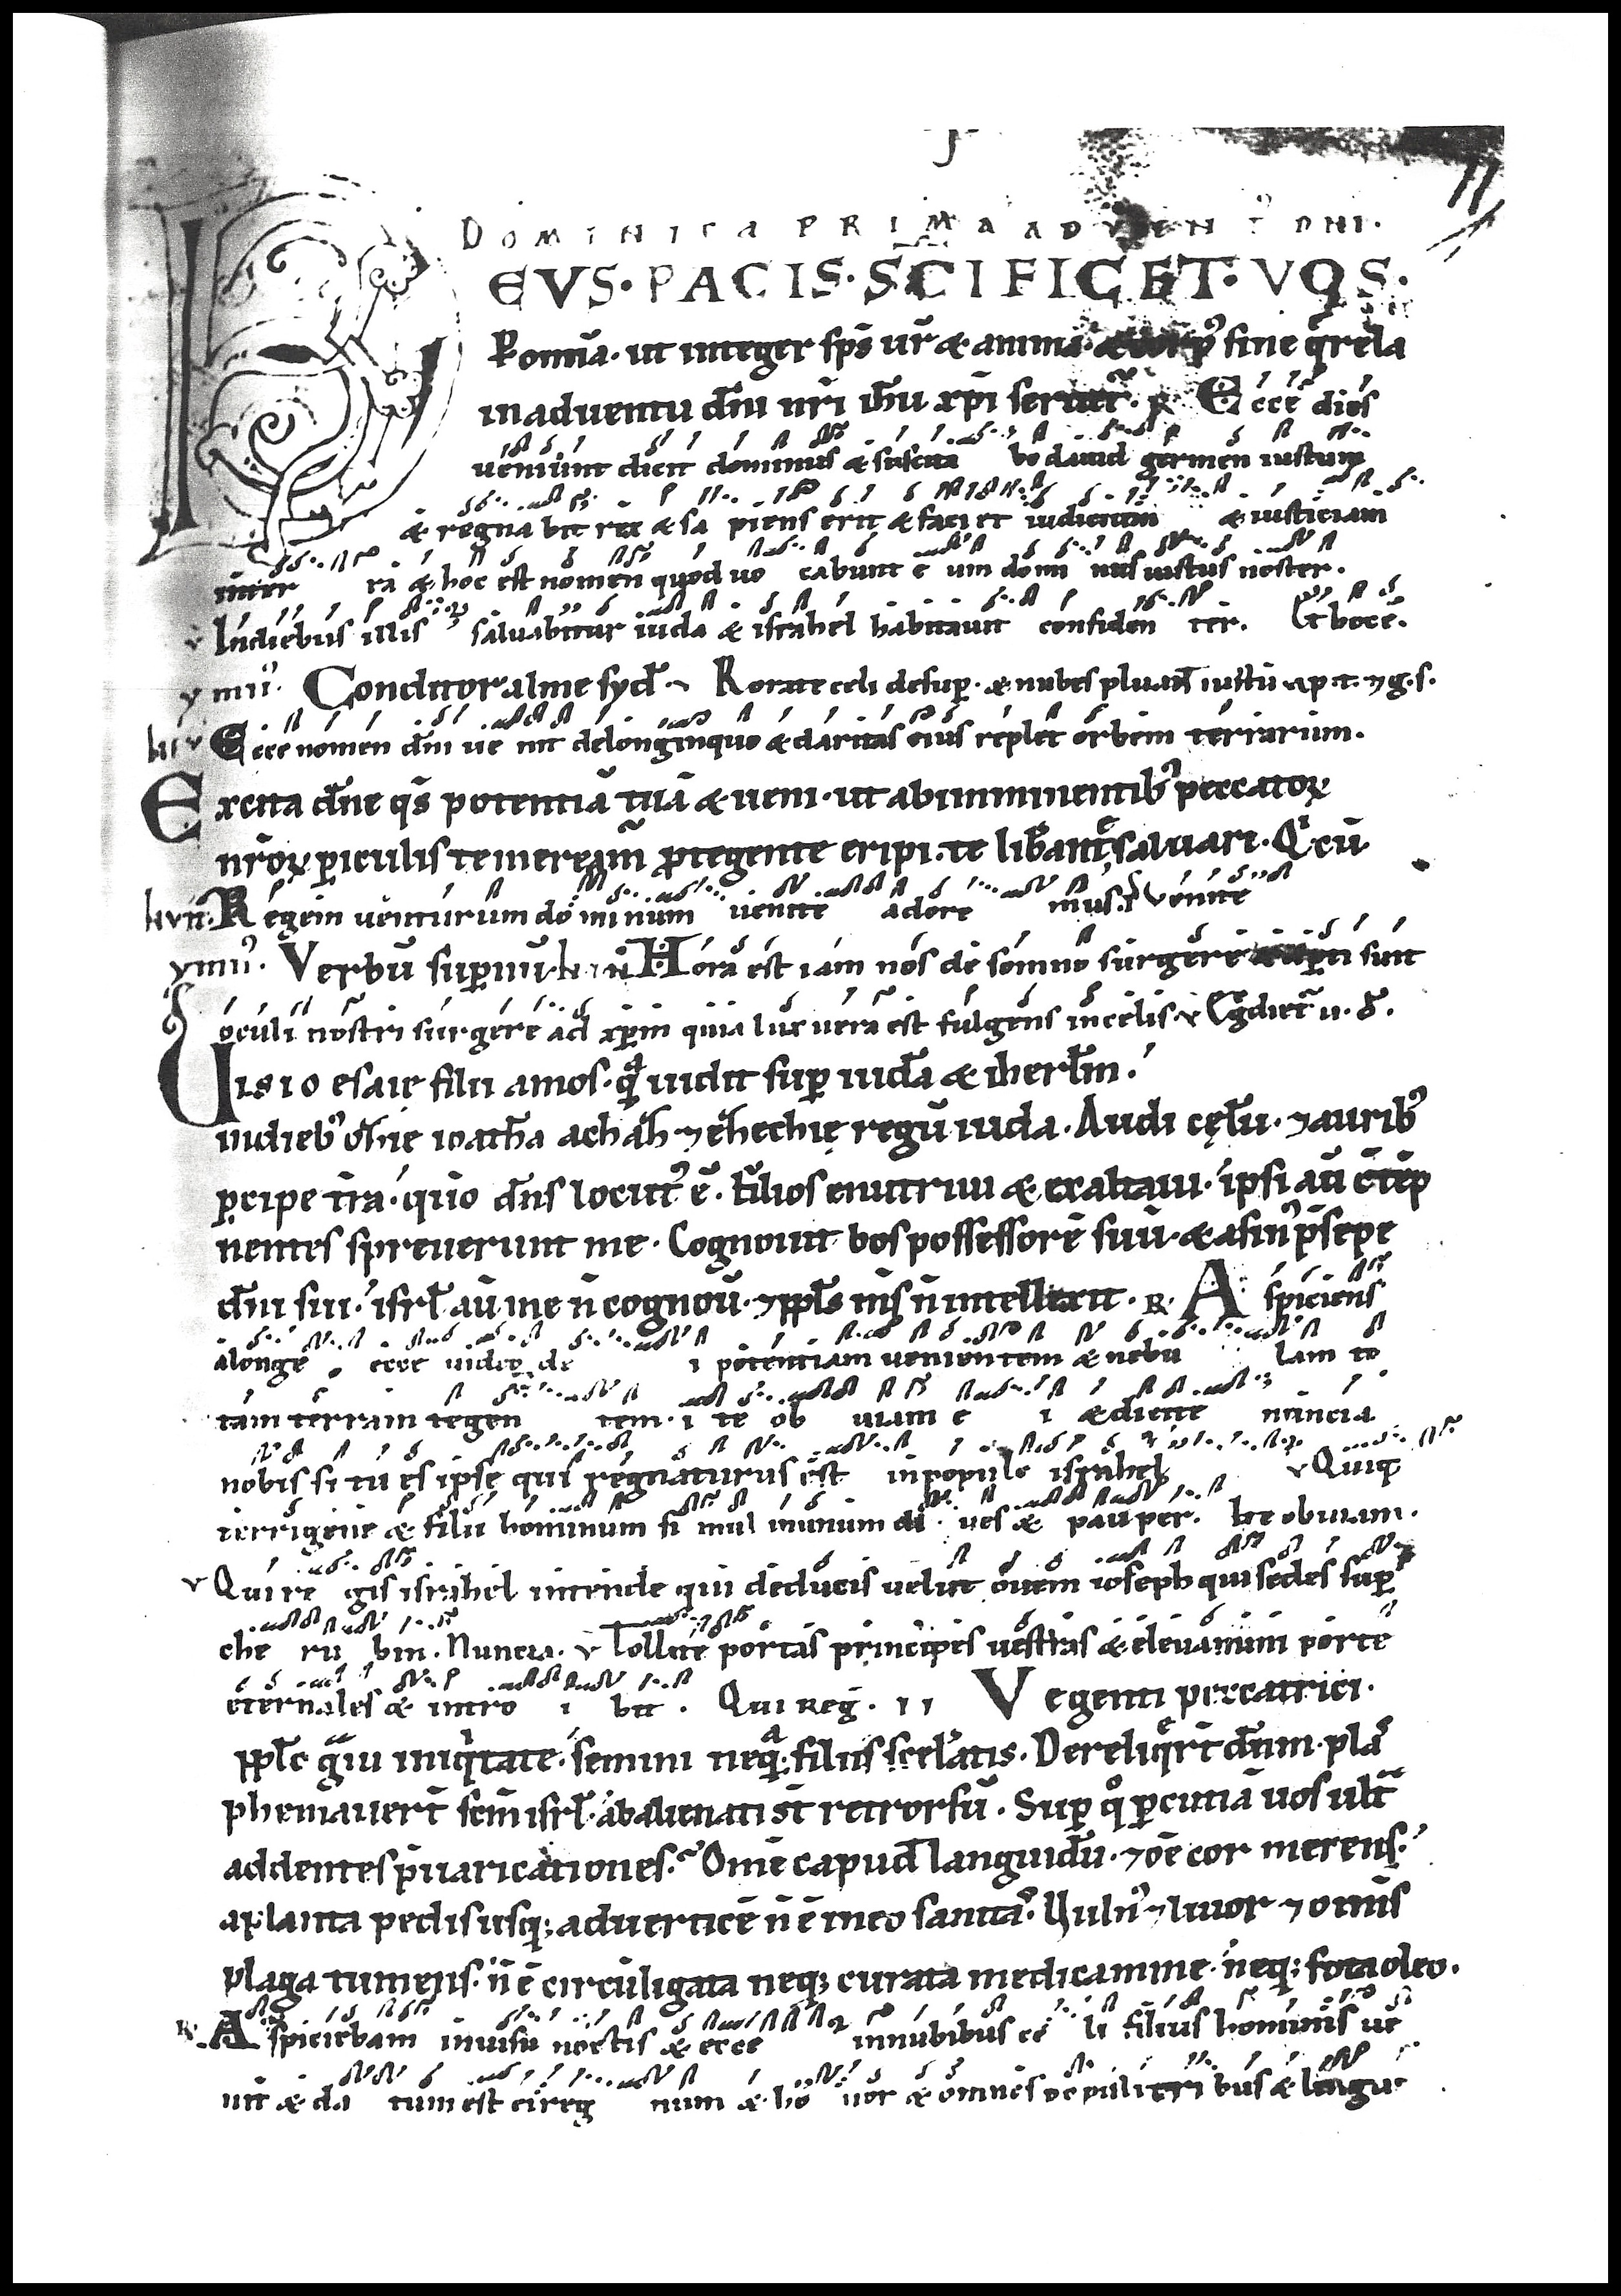 DOMINICA PRIMA ADVENT DNI.
EVS·PACIS·SCIFICET·VOS·
P omīa· ut integer sp̄s ur̄ & anima· & corpꝰ sine q̄rela
in aduentu dn̄i nr̄i ih̄u xp̄i seruet̄. R. Ecce dies
ueniunt dicit dominus & suscita bo dauid germen iustum
& regna bit rex & sa piens erit & faci et iudicium & iusticiam
inter ra & hoc est nomen quod uo cabunt e um domi nus iustus noster.
v Indiebus illis saluabitur iuda & israhel habitauit confiden ter. Et hoc ē.
ymn̄ꝰ. Conditor alme syd̄. v Rorate celi desup̄. & nubes pluant iustū ap. t. ⁊ g. s.
Ecce nomen dn̄i ue nit delonginquo & claritas eius replet orbem terrarum.
Excita dn̄e q̄s potentiā tuā & ueni· ut ab imminentibꝰ peccatoꝝ
nr̄oꝝ ꝑiculis te meream̄ ꝓtegente eripi. te liberante saluari. Q̄ cū
Inuit. Regem uenturum do minum uenite adore mus. Venite
ymn̄ꝰ. Verbū suꝑnū. Hora est iam nos de somno surgere & aperti sunt
oculi nostri surgere ad xp̄m quia lux uera est fulgens in celis v Egrediet̄ u. d.
Uisio esaie filii amos· q̄ uidit suꝑ iuda & iherl̄m.
indiebꝰ ozie ioatha achaz ⁊ ezechię regū iuda. Audi cęlū· ⁊ auribꝰ
ꝑcipe t̄ra· quō dn̄s locutꝰ ē. filios enutriui & exaltaui· ipsi aū c̄tēp
nentes spreuerunt me. Cognouit bos possessorē suū· & asinꝰ p̄sepe
dn̄i sui· isrl̄ aū me n̄ cognou̅· ⁊ ppl̄s ms̄ n̄ intellexit. R. Aspiciens
alonge ecce uideo de i potentiam uenientem & nebu lam to
tam terram tegen tem· i te ob uiam e i & dicite nuncia
nobis si tu es ipse qui regnaturus est inpopulo israhel v Quiq̄
terrigene & filii hominum si mul inunum di ues & pauper. Ite obuiam.
v Qui re gis israhel intende qui deducis uelut ouem ioseph qui sedes suꝑ
che ru bin. Nuncia. v Tollite portas principes uestras & eleuamini porte
eternales & intro i bit. Qui reg̅. II Ve genti peccatrici.
ppl̄o gͣui iniqͥtate· semini neqͣ· filiis scel̄atis. Dereliqͬr̄t dn̄m· plaͣ
phemauer̄t sc̄m isrl̄· abalienati st̄ retrorsū. Suꝑ qͦ ꝑcutiā uos ult̄
addentes p̄uaricationes. Om̄e capud languidū· ⁊ oē cor merens.
aplanta pedis usq; aduerticē n̄ ē in eo sanitaꝰ. Uulnꝰ ⁊ liuor ⁊ omīs
plaga tumens· n̄ ē circūligata neq; curata medicamine· neq; fota oleo.
R. Aspiciebam inuisu noctis & ecce innubibus ce li filius hominis ue
nit & da tum est ei reg num & ho nor & omnes populi tri bus & lingue